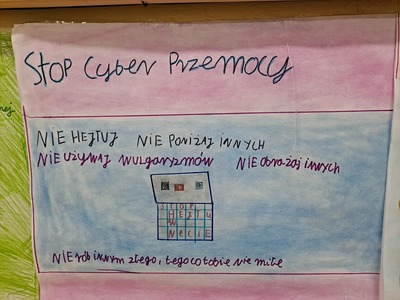 Stop Cyber Przemocy
NIE HEJTUJ NIE PONIŻAJ INNYCH
NIE UŻYWAJ wulgaryzmów NIE obrażaj innych
STOP
HEJTU
W
NECIE
NIE rób innym złego, tego co tobie nie miłe